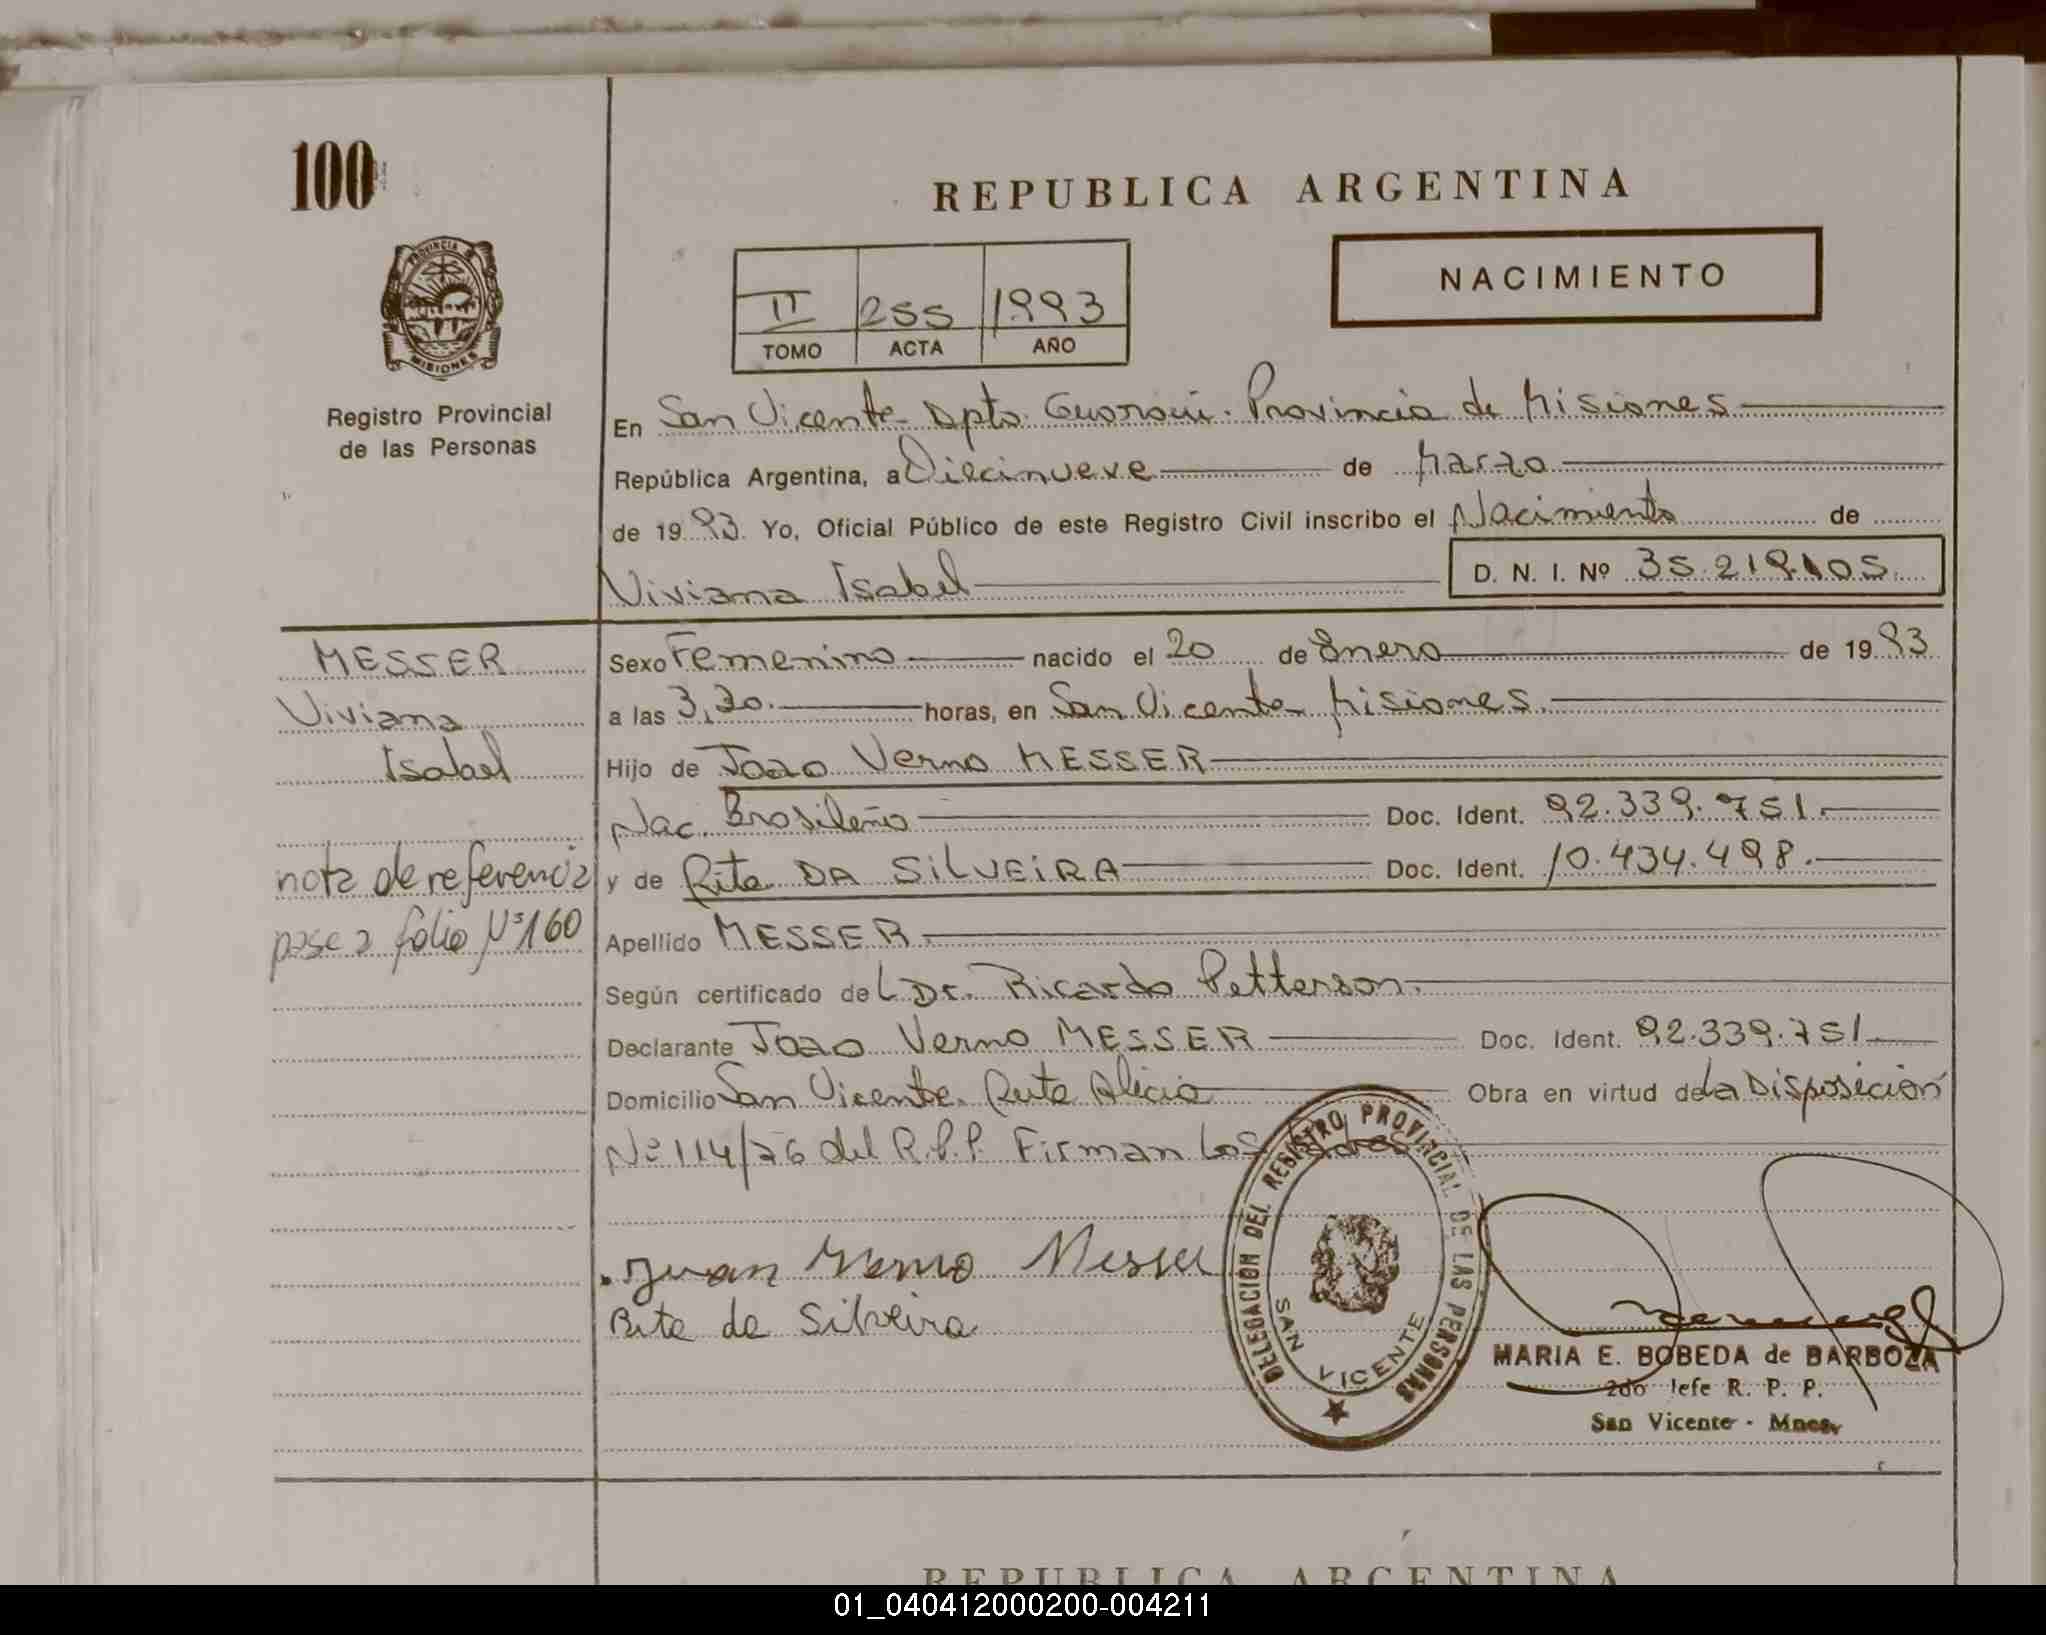 100
REPUBLICA ARGENTINA
PROVINCIA DE MISIONES
II 255 1993
TOMO ACTA AÑO
NACIMIENTO
Registro Provincial
de las Personas
En San Vicente - Dpto. Guaraní. Provincia de Misiones
República Argentina, a Diecinueve de Marzo
de 1993. Yo, Oficial Público de este Registro Civil inscribo el Nacimiento de
Viviana Isabel D. N. I. Nº 35.219.105.
MESSER
Viviana
Isabel
nota de referencia
pase a folio Nº 160
Sexo Femenino nacido el 20 de Enero de 1993
a las 3,30. horas, en San Vicente Misiones.
Hijo de Joao Verno MESSER
Nac. Brasileño Doc. Ident. 92.339.751.
y de Rita DA SILVEIRA Doc. Ident. 10.434.498.
Apellido MESSER.
Según certificado del Dr. Ricardo Petterson.
Declarante Joao Verno MESSER Doc. Ident. 92.339.751
Domicilio San Vicente. Ruta Alicia Obra en virtud de La Disposición
Nº 114/76 del R.P.P. Firman Los
Juan Verno Messer
Rita da Silveira
DELEGACION DEL REGISTRO PROVINCIAL DE LAS PERSONAS
SAN VICENTE
MARIA E. BOBEDA de BARBOZA
2do Jefe R. P. P.
San Vicente - Mnes.
REPUBLICA ARGENTINA
01_040412000200-004211